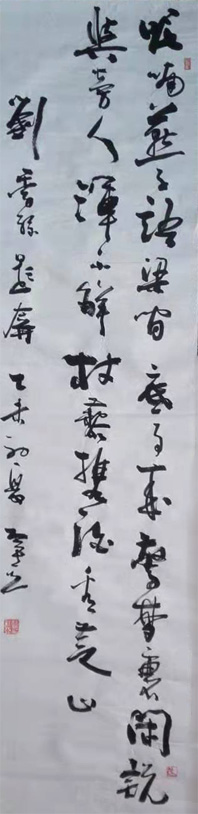 呢喃燕子語梁間底事來驚夢裏閑說
與旁人渾不解杖藜攜酒看芝山
劉季孫題屏乙未初夏